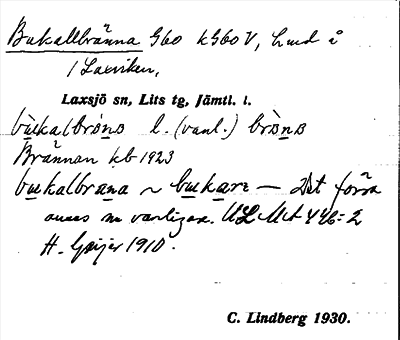 Bukallbränna G60 kG60 V, hmd i
Laxviken,
Laxsjö sn, Lits tg, Jämtl. l.
bùkalbràna l. (vanl.) bràna
Brännan kb 1923
bukalbrana ~ bukare — Det förra
anses nu vanligare. ULMA 446:2
H. Geijer 1910.
C. Lindberg 1930.